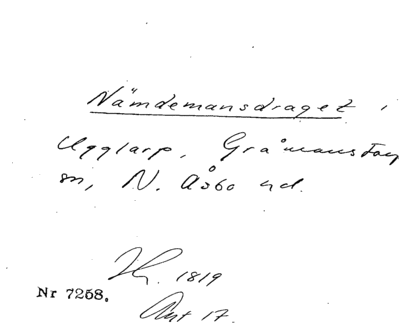 Nämdemansdraget i
Ugglarp, Gråmanstorp
sn, N. Åsbo hd.
1819
Nr 7258.
Akt 17.